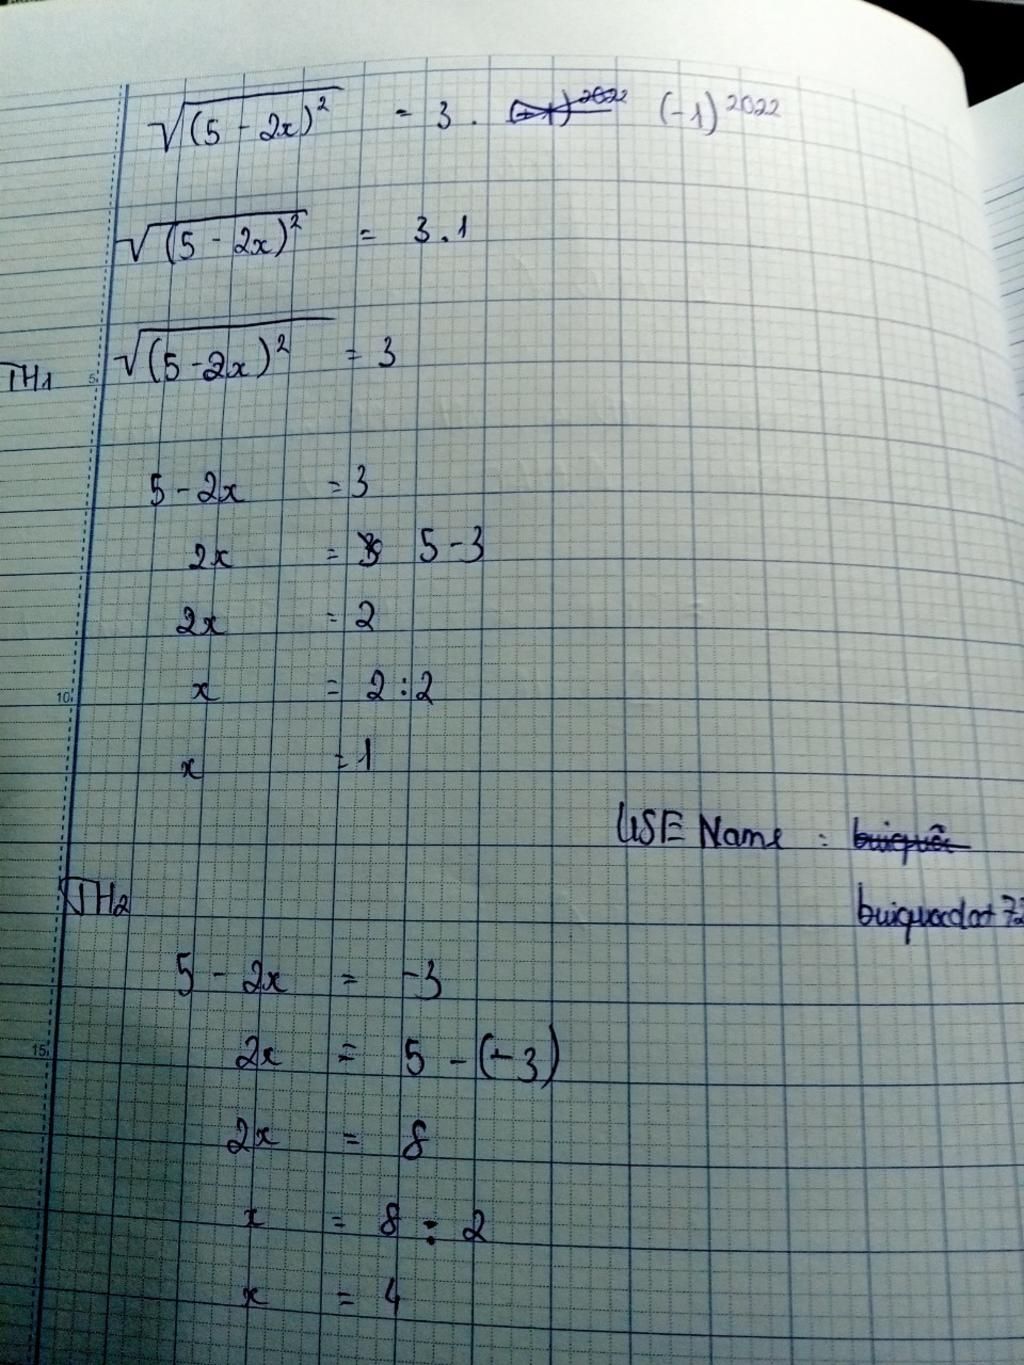 √(5 - 2x)² = 3 . (-1)²⁰²² (-1)²⁰²²
√(5 - 2x)² = 3.1
TH1 √(5 - 2x)² = 3
5
5 - 2x = 3
2x = 5 - 3
2x = 2
10
x = 2 : 2
x = 1
USE Name : buiquôc
TH2
buiquocdat72
5 - 2x = -3
15
2x = 5 - (-3)
2x = 8
x = 8 : 2
x = 4